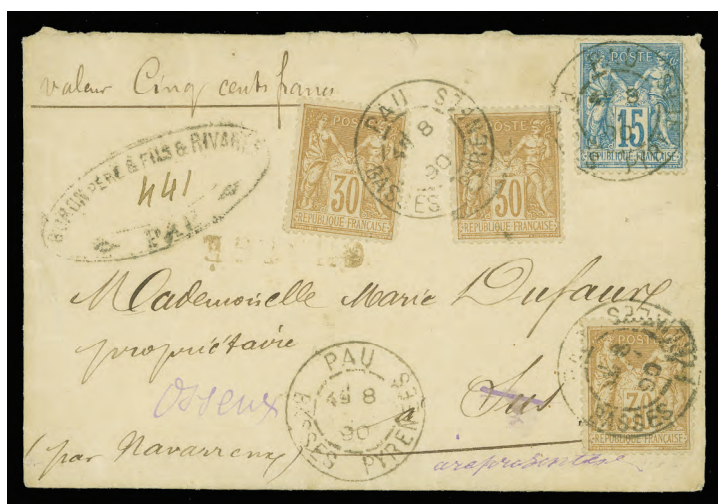 valeur Cinq cents francs
PÈRE & FILS & RIVARÈS
441
PAU
POSTE
30
REPUBLIQUE FRANÇAISE
PAU
8
90
BASSES PYRENEES
POSTE
30
REPUBLIQUE FRANÇAISE
POSTE
15
REPUBLIQUE FRANÇAISE
Mademoiselle Marie Dufaure
propriétaire
Osseux
Sus
(par Navarrenx)
PAU
8
90
BASSES PYRENEES
POSTE
30
REPUBLIQUE FRANÇAISE
BASSES
90